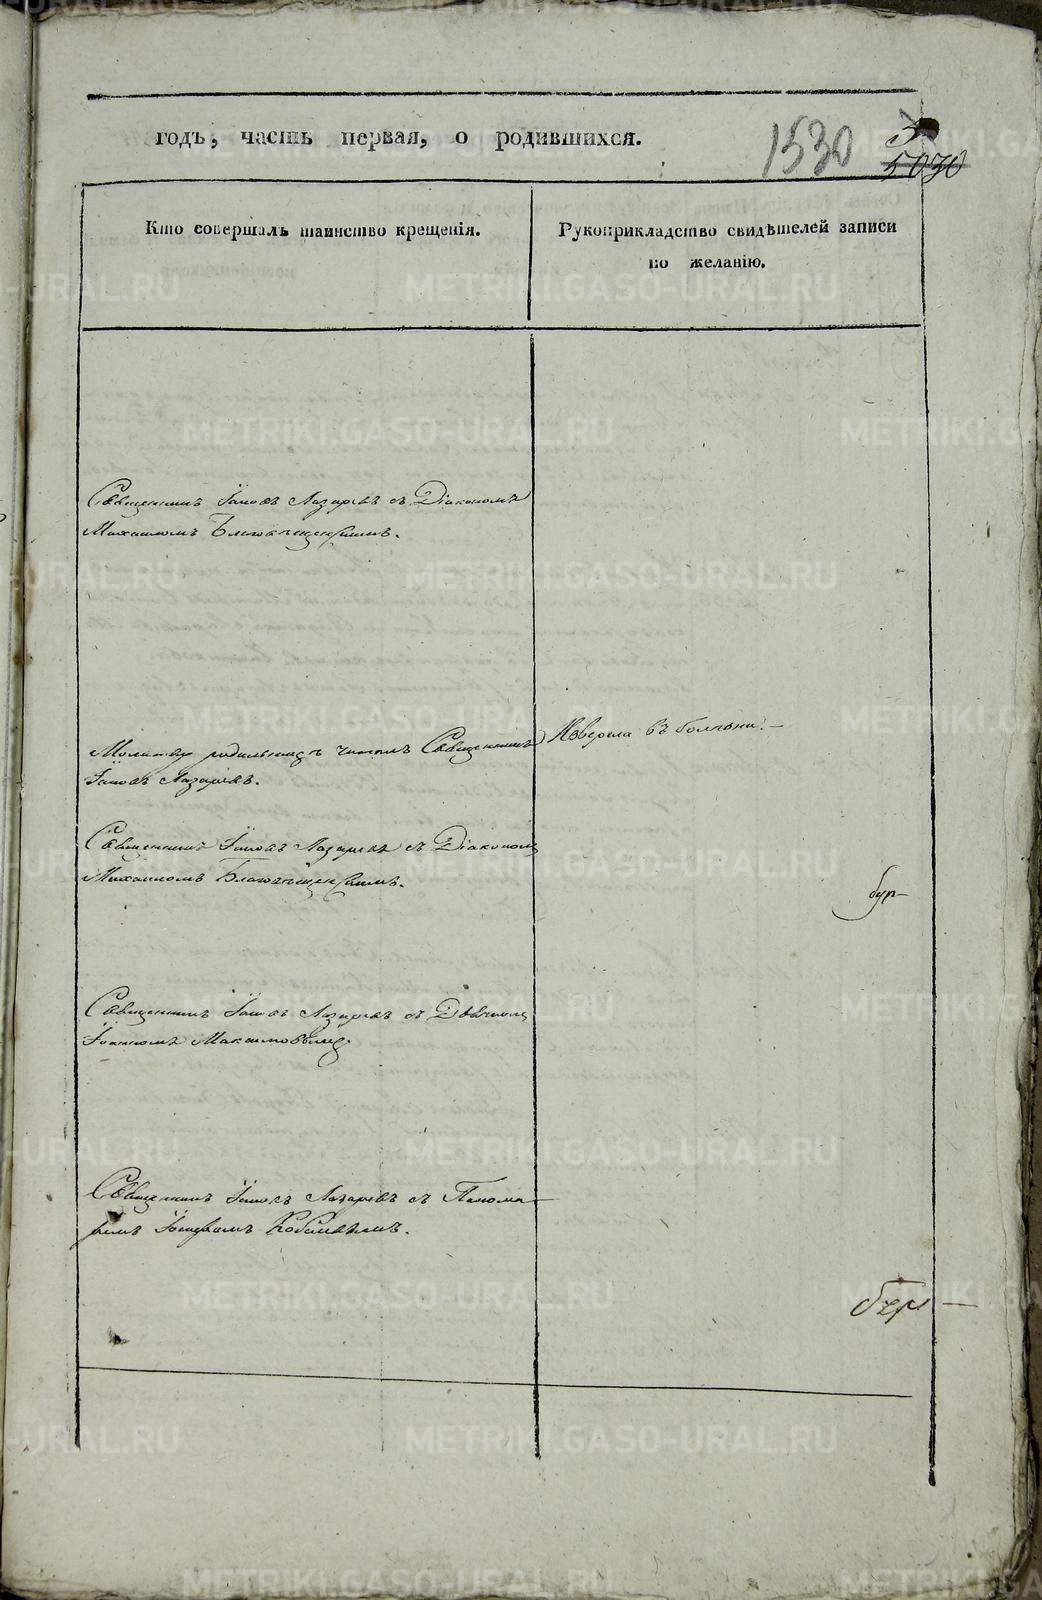 годъ, часть первая, о родившихся.
1530
5030
Кто совершалъ таинство крещенія.
Рукоприкладство свидѣтелей записи
по желанію.
Священникъ Іаковъ Лазаревъ съ Діакономъ
Михаиломъ Благовѣщенскимъ.
Молитву родильницѣ читалъ Священникъ
Іаковъ Лазаревъ.
въ болѣзни.
Священникъ Іаковъ Лазаревъ съ Діакономъ
Михаиломъ Благовѣщенскимъ.
Священникъ Іаковъ Лазаревъ съ Дьячкомъ
Іоанномъ Максимовымъ.
Священникъ Іаковъ Лазаревъ съ Понома-
ремъ Іосифомъ
METRIKI.GASO-URAL.RU